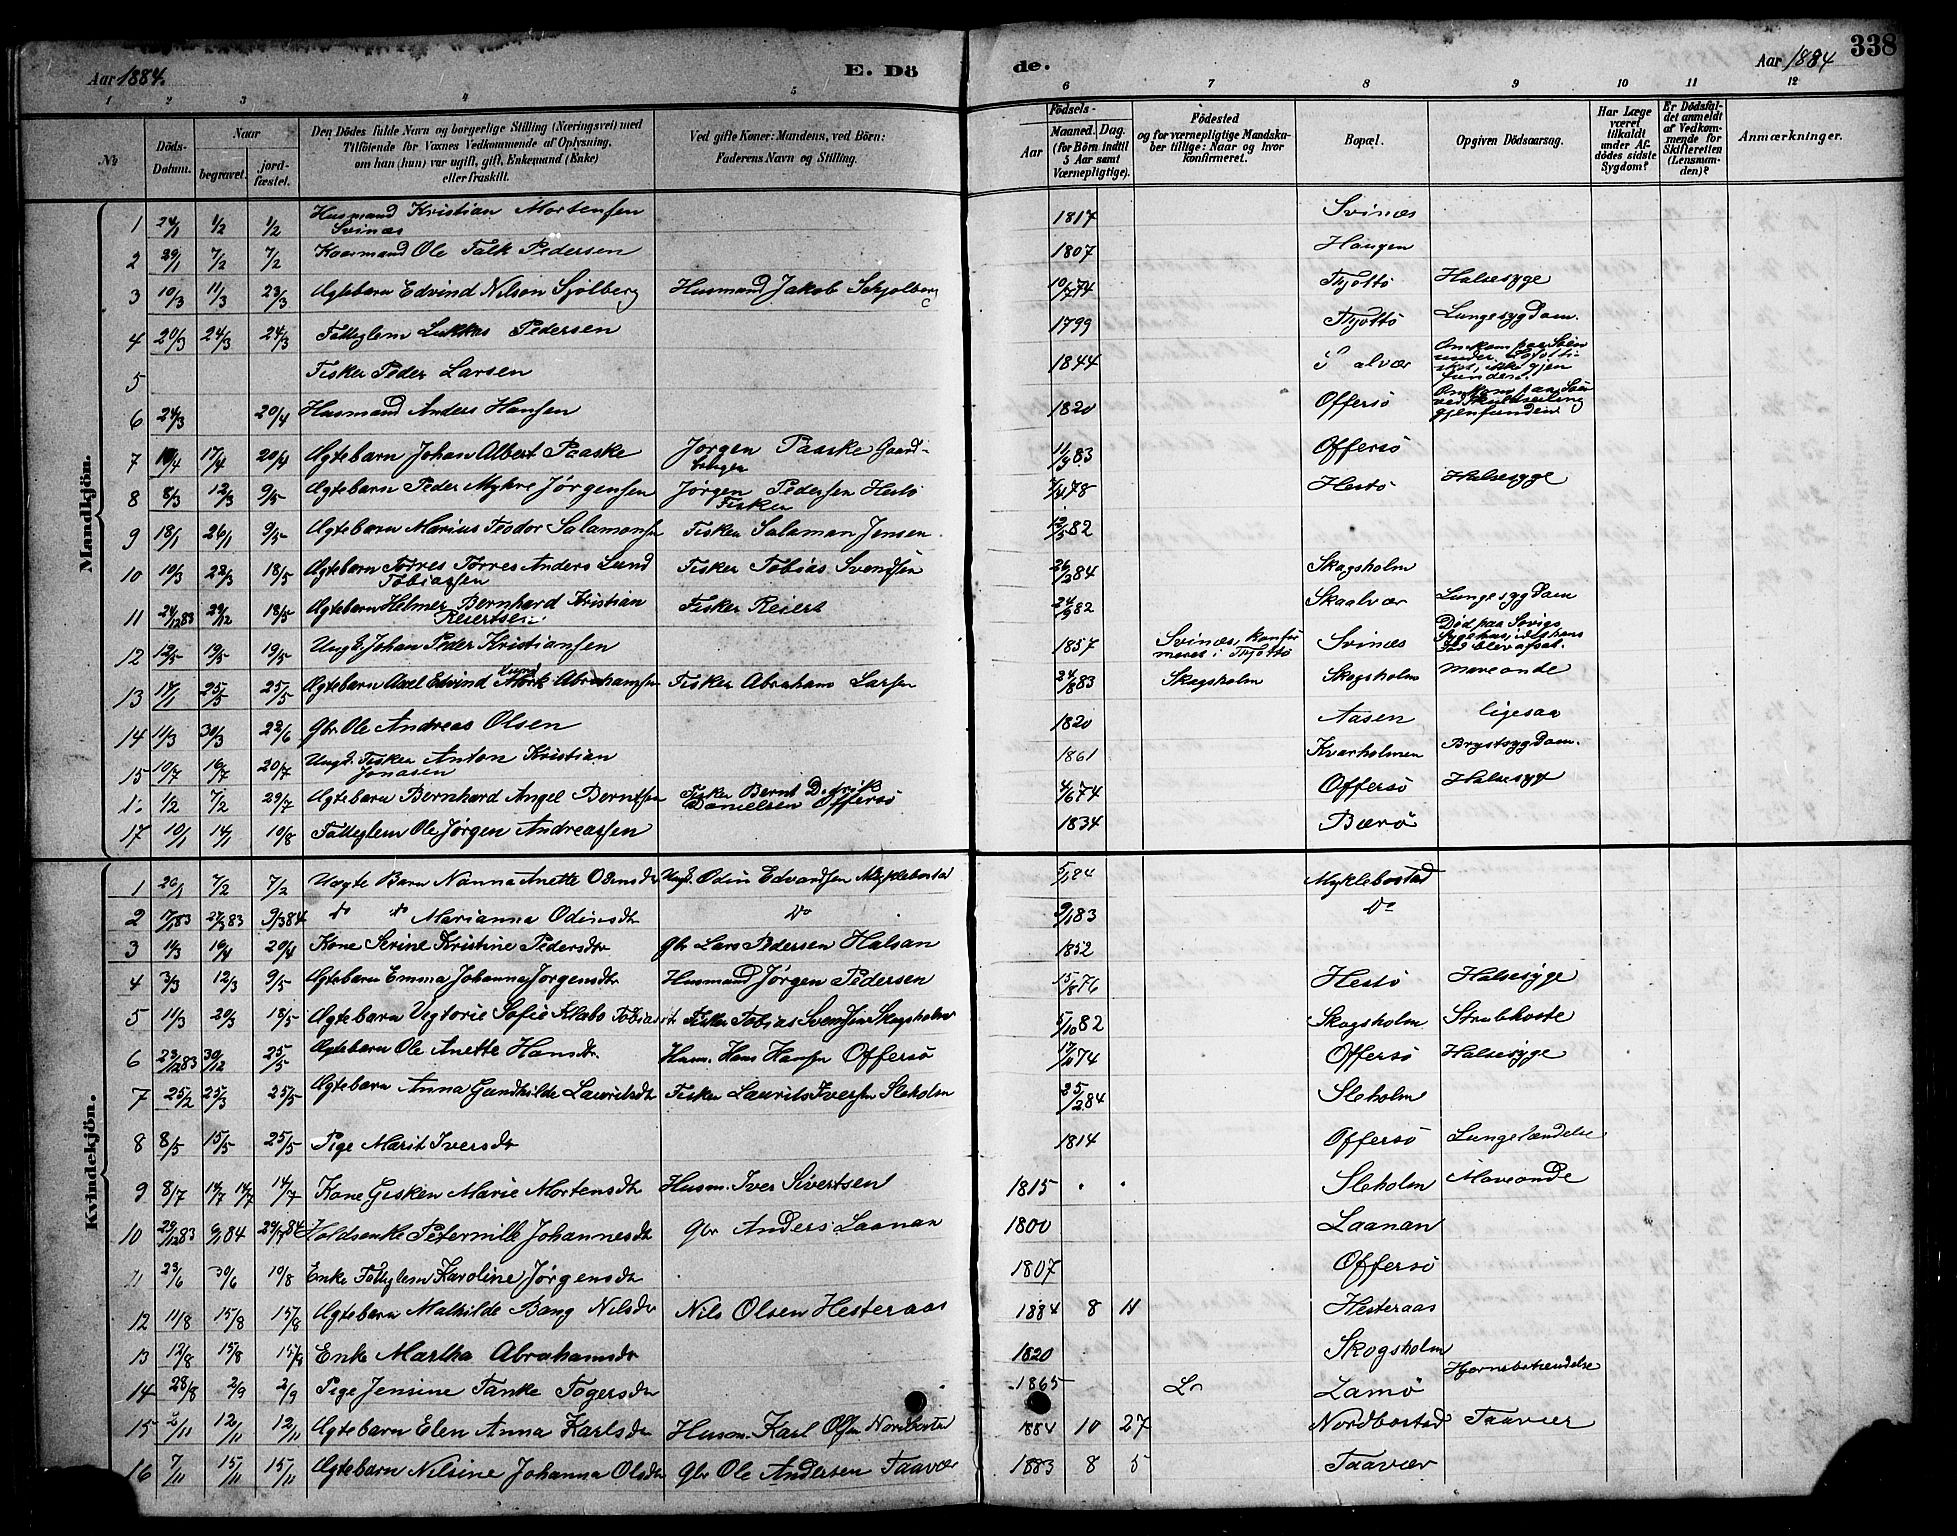 338
Aar 1884. E. Dö de. Aar 1884
1 2 3 4 5 6 7 8 9 10 11 12
No
Döds-Datum.
Naar
begravet.
jord-fæstet.
Den Dödes fulde Navn og borgerlige Stilling (Næringsvei) med
Tilföiende for Voxnes Vedkommende af Oplysning,
om han (hun) var ugift, gift, Enkemand (Enke)
eller fraskilt.
Ved gifte Koner: Mandens, ved Börn:
Faderens Navn og Stilling.
Födsels-
Aar
Maaned. Dag.
(for Börn indtil
5 Aar samt
Værnepligtige).
Födested
og for værnepligtige Mandska-
ber tillige: Naar og hvor
konfirmeret.
Bopæl.
Opgiven Dödsaarsag.
Har Læge
været
tilkaldt
under Af-
dödes sidste
Sygdom?
Er Dödsfal-
det anmeldt
af Vedkom-
mende for
Skifteretten
(Lensman-
den)?
Anmærkninger.
Mandkjön.
1 24/1 1/2 1/2 Husmand Kristian Mortensen Svinæs 1817 Svinæs
2 29/1 7/2 7/2 Kaarmand Ole Falk Pedersen 1807 Haugen
3 10/3 11/3 23/3 Ægtebarn Edvind Nilson Sjölberg Husmand Jakob Schjølberg 10/7 74 Thjøttö Halsesyge
4 20/3 24/3 24/3 Fattiglem Lukkas Pedersen 1799 Thjøttö Lungesygdom.
5 Fisker Peder Larsen 1844 alvær Omkom paa Söen under Lofotfi- sket, ikke gjen funden
6 24/3 20/4 Husmand Anders Hansen 1820 Offersö Omkom paa Söen ved Kuldseiling gjenfunden
7 10/4 17/4 20/4 Ægtebarn Johan Albert Paaske Jørgen Paaske Gaard- 11/3 83 Offersö
8 8/3 12/3 9/5 Ægtebarn Peder Myhre Jørgensen Jørgen Pedersen Hestö Fisker 7/4 78 Hestö Halsesyge
9 18/1 26/1 9/5 Ægtebarn Marius Teodor Salamonsen Fisker Salaman Jensen 12/5 82
10 10/3 22/3 18/5 Ægtebarn Torres Anders Lund Tobiassen Fisker Tobias Svendsen 26/2 84 Skogsholm
11 24/12 83 29/12 18/5 Ægtebarn Helmer Bernhard Kristian Reiertsen Fisker Reiert 24/9 82 Skaalvær Lungesygdom
12 12/5 19/5 19/5 Ungk. Johan Peder Kristiansen 1857 Svinæs, konfir meret i Thjøttö Svinæs Död paa Søvigs Sygehus, idet hans Fod blev afsat.
13 17/1 25/5 25/5 Ægtebarn Axel Edvind Lund Abrahamsen Fisker Abraham Larsen 24/8 83 Skogsholm Skogsholm Maveonde
14 11/3 30/3 22/6 Gbr. Ole Andreas Olsen 1820 Aasen ligesaa
15 10/7 16/7 20/7 Ungk. Fisker Anton Kristian Jonasen 1861 Kvarholmen Brystsygdom.
1/2 7/2 29/7 Ægtebarn Bernhard Angel Berntsen Fisker Bernt Danielsen Offersö 4/6 74 Offersö Halsesyge
17 10/1 14/1 10/8 Fattiglem Ole Jørgen Andreassen 1834 Bærö
Kvindekjön.
1 26/1 7/2 7/2 Uægte Barn Nanna Anette Odinsdtr Ungk. Odin Edvardsen Myklebostad 5/1 84 Myklebostad
2 17/1 83 27/3 83 9/3 84 do do Marianna Odinsdtr Do 9/1 83 Do
3 14/3 19/4 20/4 Kone Serine Kristine Pedersdtr Gbr Lars Pedersen Halsan 1852
4 3/3 12/3 9/5 Ægtebarn Emma Johanna Jørgensdtr Husmand Jørgen Pedersen 15/8 76 Hestö Halsesyge
5 11/3 20/3 18/5 Ægtebarn Vigtorie Sofie Klabo Tobiasdt Fisker Tobias Svendsen Skogsholm 5/10 82 Skogsholm Strubhoste
6 23/12 83 30/12 25/5 Ægtebarn Ole Anette Hansdtr. Husm. Hans Hansen Offersö 74 Offersö Halsesyge
7 25/2 25/3 25/5 Ægtebarn Anna Gundhilde Lauritsdtr Fisker Laurits Iversen Sleholm 25/2 84 Sleholm
8 8/5 15/5 25/5 Pige Marit Iversdtr 1814 Offersö Lungebetændelse
9 8/7 14/7 14/7 14/7 Kone Gisken Marie Mortensdtr Husm. Iver Sivertsen 1815 Sleholm Maveonde
10 29/12 83 6/1 84 84 Holdsenke Peternille Johannesdtr Gbr Anders Laanan 1800 Laanan
23/6 30/6 10/8 Enke Fattiglem Karoline Jørgensdtr 1807 Offersö
12 11/8 15/8 15/8 Ægtebarn Mathilde Bang Nilsdtr Nils Olsen Hesteraas 1884 8 11 Hesteraas
13 12/8 15/8 15/9 Enke Martha Abrahamsdtr 1820 Skogsholm
14 28/8 2/9 2/9 Pige Jensine Tanke Togersdtr 1865 Lamö Hjernebetændelse
15 2/11 12/11 12/11 Ægtebarn Elen Anna Karlsdtr Husm. Karl Olsen Nordbostad 1884 10 27 Nordbostad Taavær
16 7/11 15/11 15/11 Ægtebarn Nilsine Johanna Olsdtr Gbr Ole Andersen Taavær 1883 8 5 Taavær